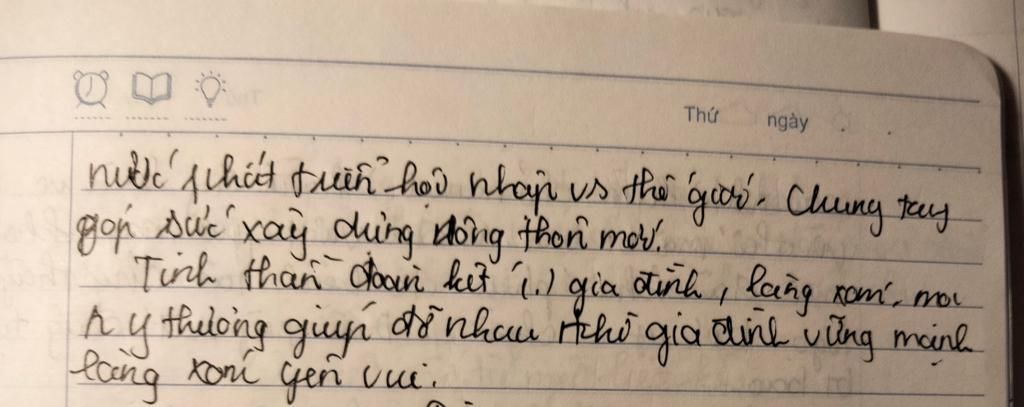 Thứ ngày
nước phát triển hội nhập vs thế giới. Chung tay
góp sức xây dựng nông thôn mới.
Tinh thần đoàn kết (.) gia đình, làng xóm, mọi
n y thương giúp đỡ nhau thì gia đình vững mạnh
làng xóm yên vui.